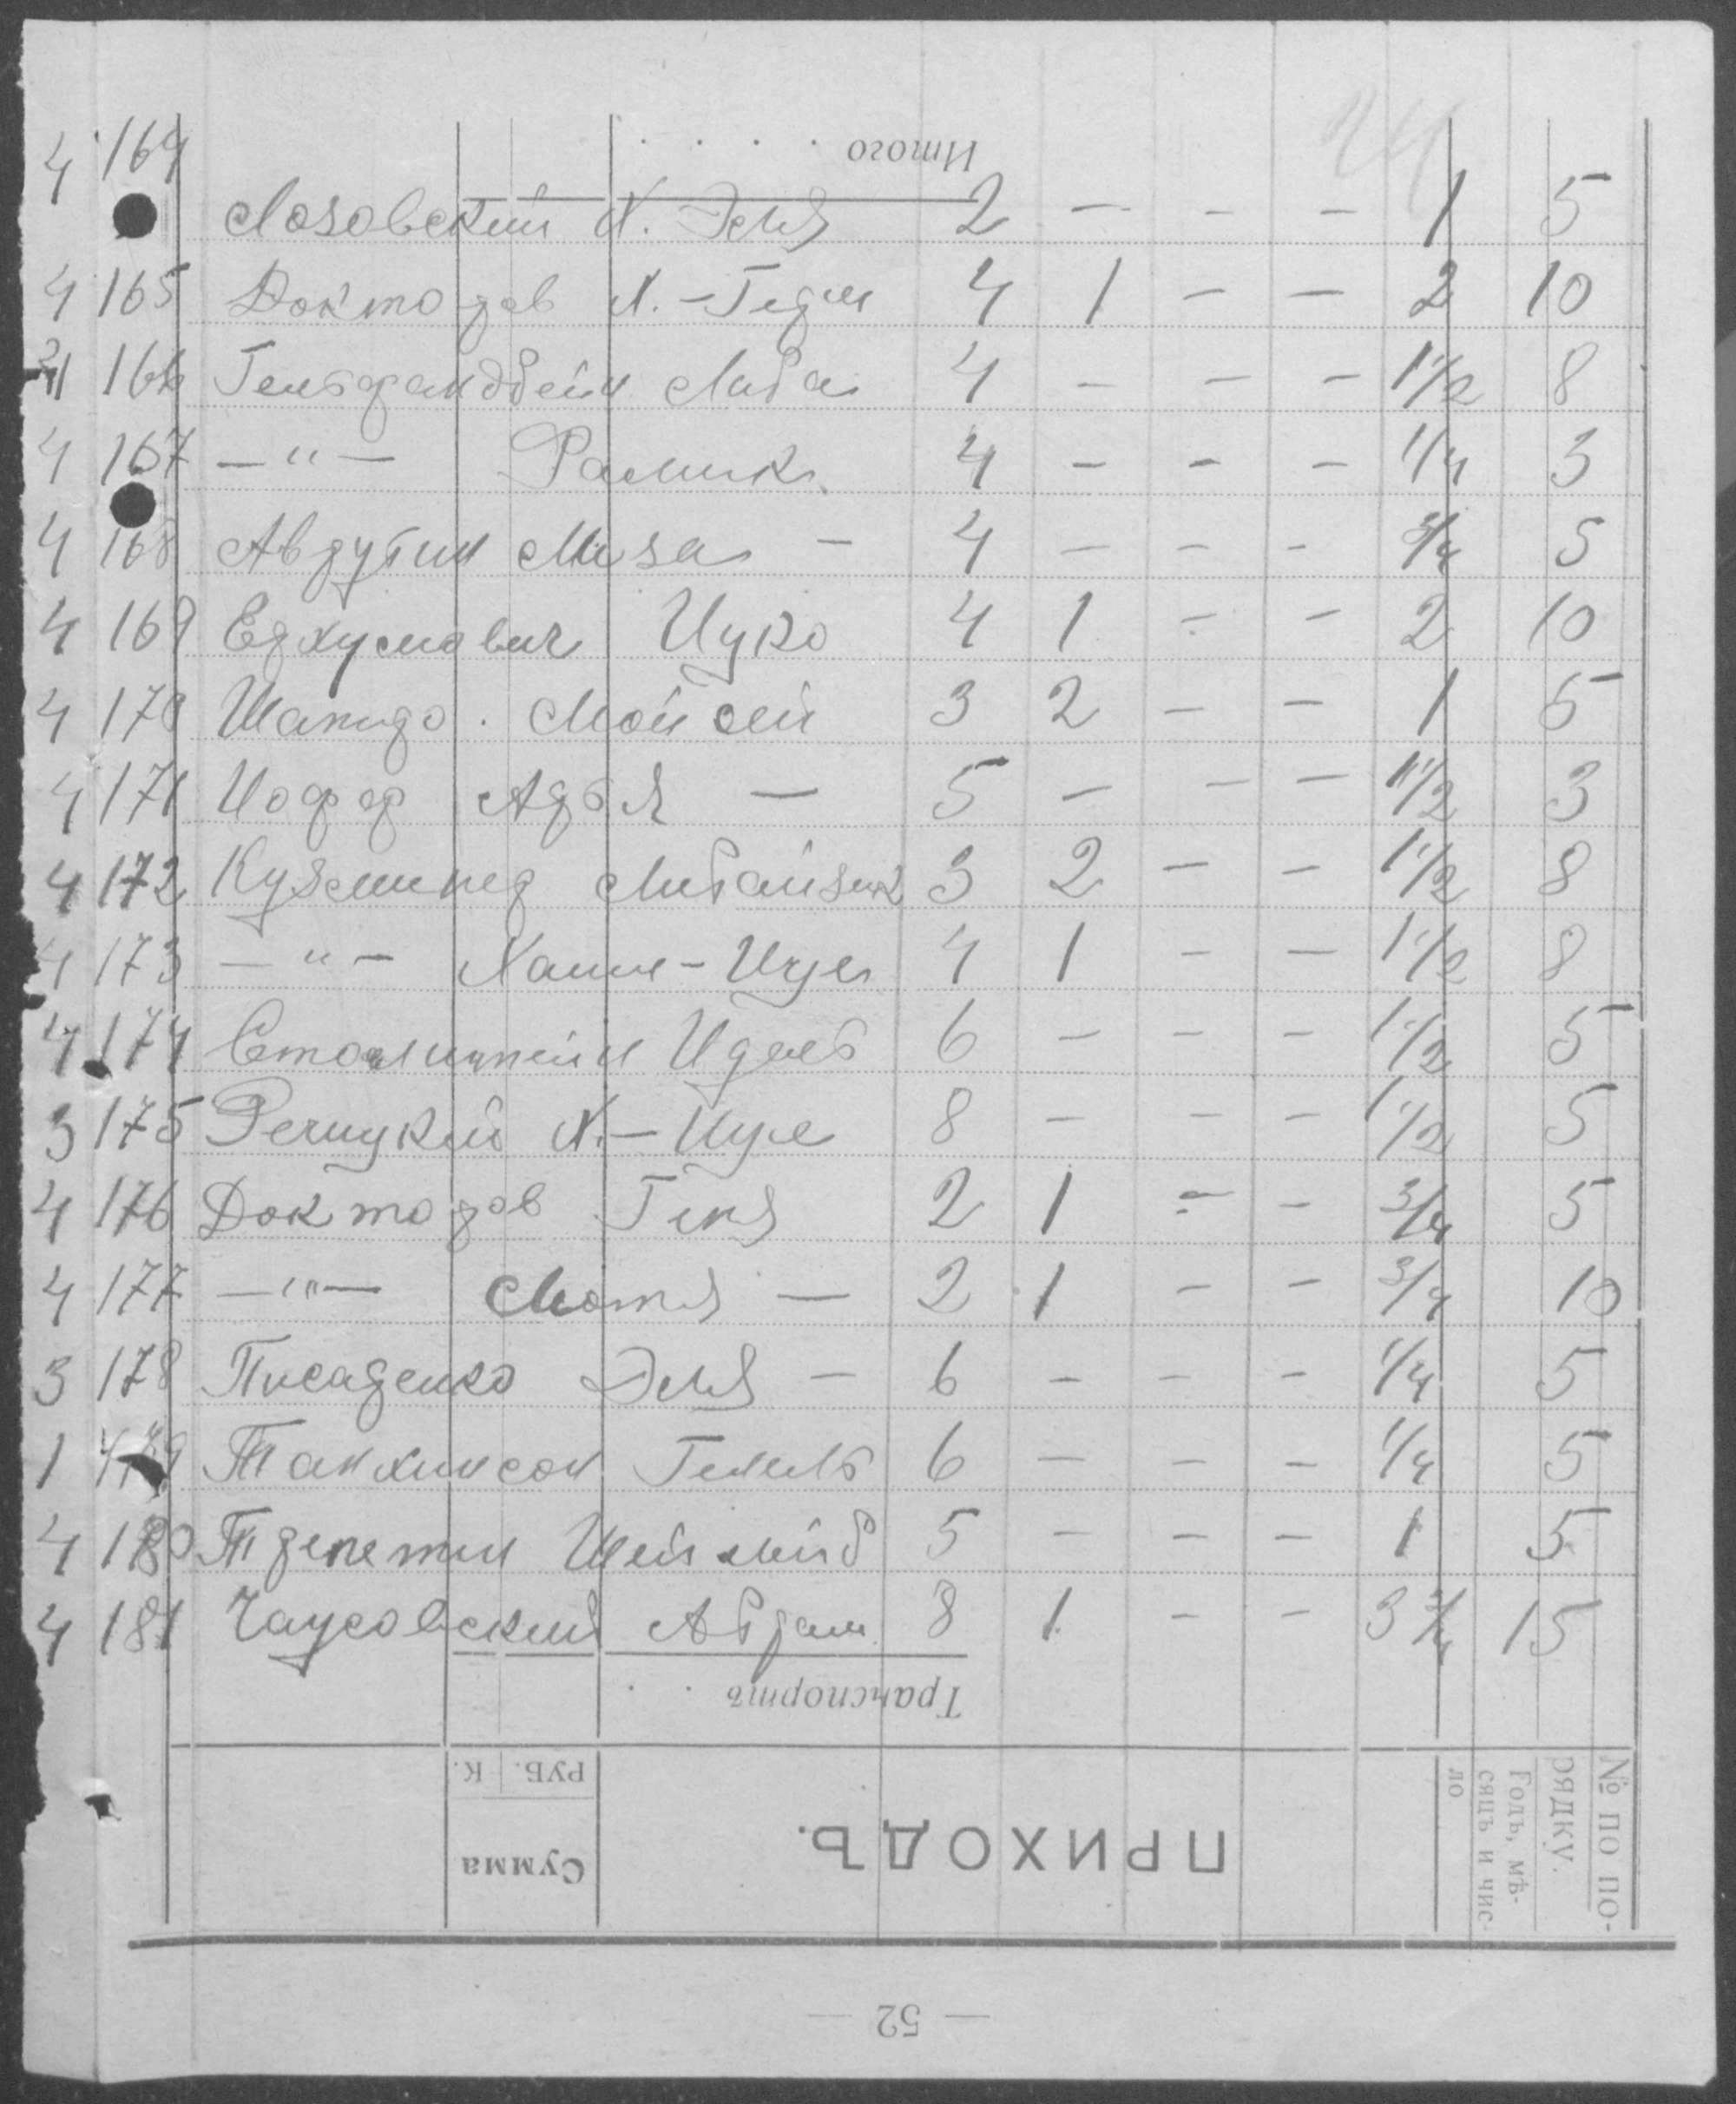 Итого . . . .
4 164 Лозовский Х. Эля 2 — - - 1 5
4 165 Докторов Х.-Герш 4 1 - - 2 10
166 Гельфандбейн Либа 4 - - - 1 1/2 8
4 167 —"— 4 - - - 1/4 3
4 168 Аврутин Миза - 4 - - - 3/4 5
4 169 Еркусмович Ицко 4 1 - - 2 10
4 170 Шапиро . Мойсей 3 2 - - 1 5
4 171 Иофф — 5 - - - 1 1/2 3
4 172 Кузминер Либайзик 3 2 - - 1 1/2 8
4 173 —"— Хаим-Ицел 4 1 - - 1 1/2 8
4 174 6 - - - 1 1/2 5
3 175 Речицкий Х.- 8 - - - 1 1/2 5
4 176 Докторов Геня 2 1 - - 3/4 5
4 177 —"— Мотя — 2 1 - - 3/4 10
3 178 Писаренко Эля - 6 - - - 1/4 5
1 179 Танхимсон 6 - - - 1/4 5
4 180 Трепетин 5 - - - 1 5
4 181 Чаусовский Абрам 8 1 - - 3 3/4 15
Транспортъ . .
№ по порядку.
Годъ, мѣсяцъ и число
ПРИХОДЪ.
Сумма
РУБ. К.
— 52 —